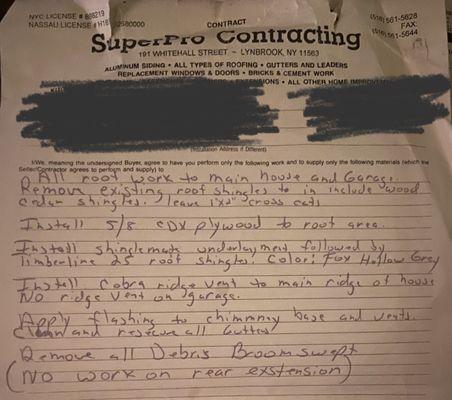 NYC LICENSE # 888219
NASSAU LICENSE # H18
CONTRACT
(516) 561-5628
FAX:
(516) 561-5644
SuperPro Contracting
191 WHITEHALL STREET ~ LYNBROOK, NY 11563
ALUMINUM SIDING • ALL TYPES OF ROOFING • GUTTERS AND LEADERS
REPLACEMENT WINDOWS & DOORS • BRICKS & CEMENT WORK
EXTENSIONS • ALL OTHER HOME
(Installation Address if Different)
I/We, meaning the undersigned Buyer, agree to have you perform only the following work and to supply only the following materials (which the
Seller/Contractor agrees to perform and supply) to
All root work to main house and Garage.
Remove existing roof shingles to in include wood
Cedar shingles. leave 1"x2" cross cats
Install 5/8 CDX plywood to root area.
Install shinglemate underlayment followed by
timberline 25 roof shingles! Color! Fox Hollow Grey
Install Cobra ridge vent to main ridge of house
No ridge vent on garage.
Apply flashing to chimney base and vents.
Clean and reserve all Gutters
Remove all Debris Broomswept
(No work on rear exstension)